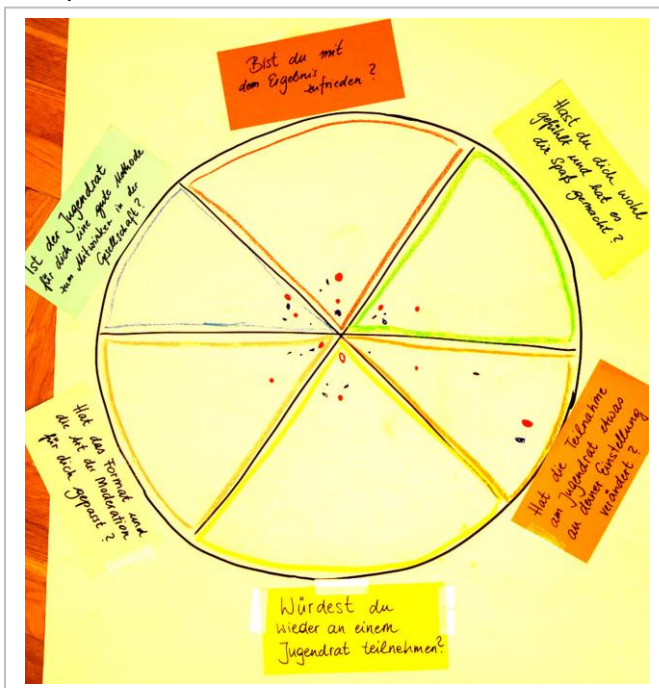 Bist du mit
dem Ergebnis
zufrieden?
Hast du dich wohl
gefühlt und hat es
dir Spaß gemacht?
Hat die Teilnahme
am Jugendrat etwas
an deiner Einstellung
verändert?
Würdest du
wieder an einem
Jugendrat teilnehmen?
Hat das Format und
die Art der Moderation
für dich gepasst?
Ist der Jugendrat
für dich eine gute Methode
zum Mitwirken in der
Gesellschaft?